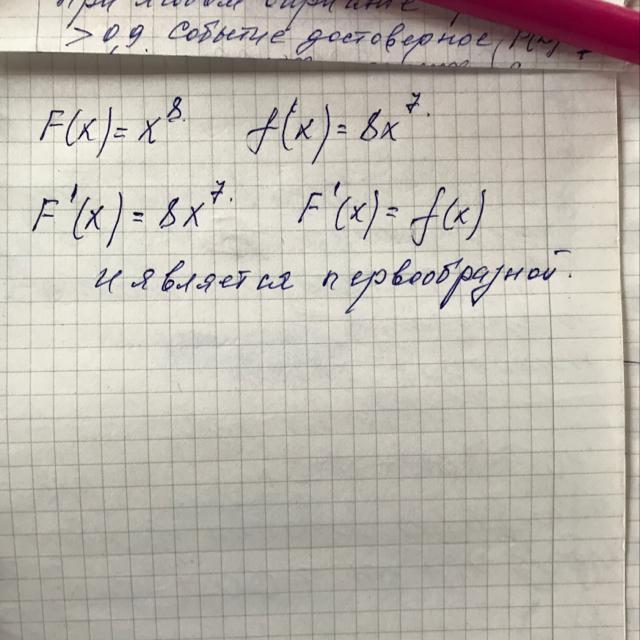 при любом
> 0,9. Событие достоверное
F(x) = x⁸. f(x) = 8x⁷.
F'(x) = 8x⁷. F'(x) = f(x)
и является первообразной.